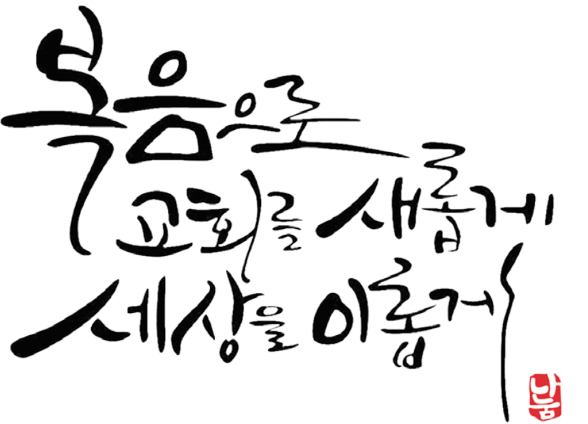 복음으로
교회를 새롭게
세상을 이롭게
나눔